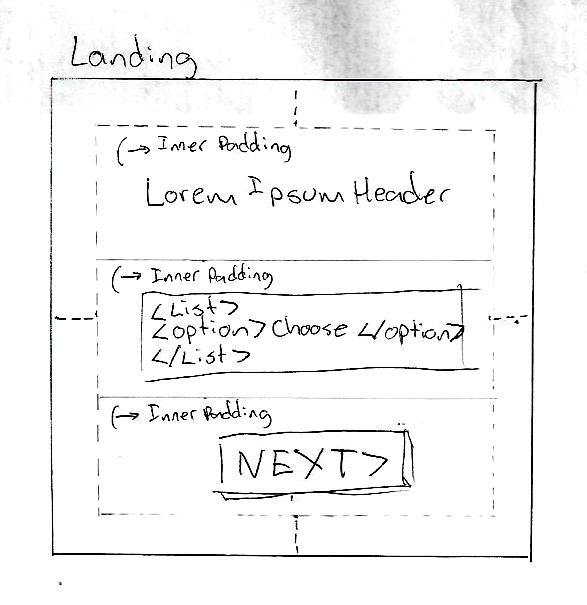 Landing
Inner Padding
Lorem Ipsum Header
Inner Padding
<List>
<option> Choose </option>
</List>
Inner Padding
NEXT>